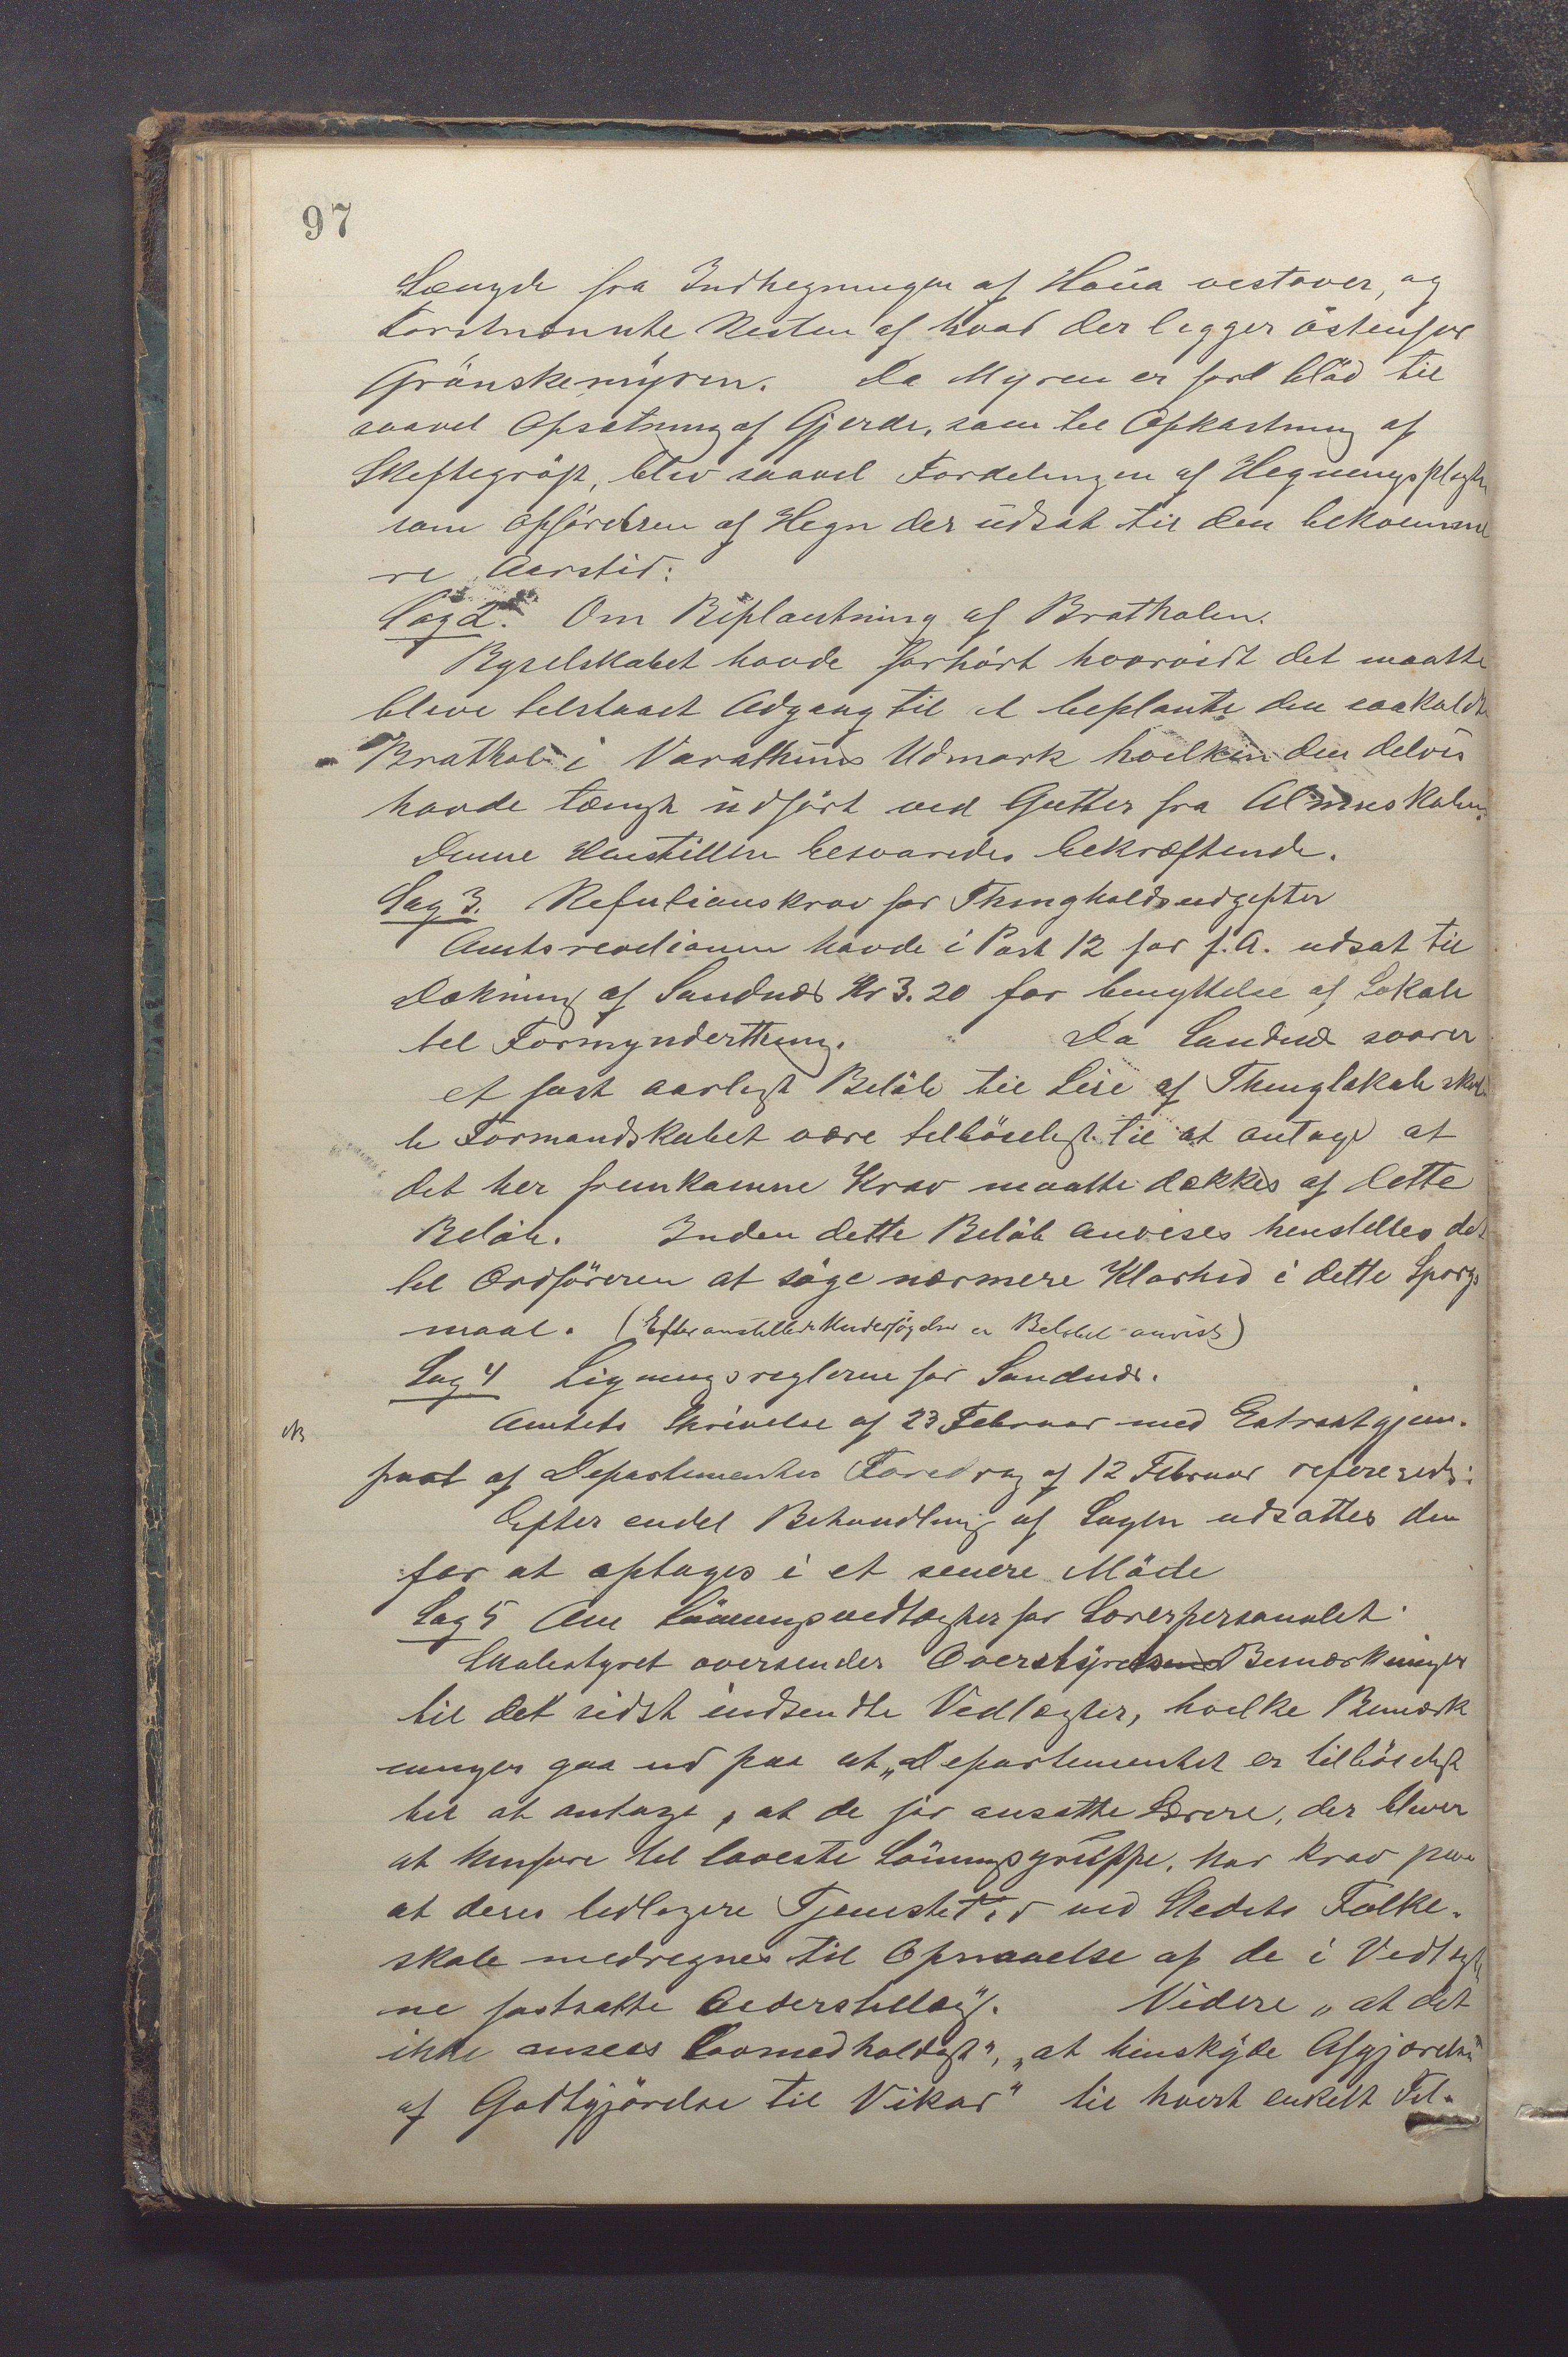 97
Længde fra Indhegningen af Haua vestover, og
Forstnævnte Resten af hvad der ligger östenfor
Grönskemyren. Da Myren er for blöd til
saavel Opsætning af Gjerde, som til Opkastning af
Skeftegröft, blev saavel Fordelingen af Hegningspligten
som Opförelsen af Hegn der udsat til den bekvemme
re Aarstid:
Sag 2. Om Beplantning af Bratholen.
Byselskabet havde forhört hvorvidt det maatte
blive tilstaaet Adgang til at beplante den saakaldte
Brathole i Varathuns Udmark hvilken den delvis
havde tænkt udfört ved Gutter fra Almueskolen.
Denne Henstillen besvaredes bekræftende.
Sag 3. Refusionskrav for Thingholdsudgifter
Amtsrevisionen havde i Post 12 for f. A. udsat til
Dækning af Sandnæs Kr 3.20 for benyttelse af Lokale
til Formynderthing. Da Sandnæs svarer
et fast aarligt Belöb til Leie af Thinglokale skul
le Formandskabet være tilböieligt til at antage at
det her fremkomne Krav maatte dækkes af dette
Belöb. Inden dette Belöb anvises henstilles det
til Ordföreren at söge nærmere Klarhed i dette Sporgs
maal. (Efter anstillede Undersögelser er Belöbet anvist)
Sag 4 Ligningsreglerne for Sandnæs.
NB Amtets Skrivelse af 23 Februar med Extraktgjen-
part af Departementets Foredrag af 12 Februar refereredes:
Efter endel Behandling af Sagen udsattes den
for at optages i et senere Möde
Sag 5 Om Lönningsvedtægter for Lærerpersonalet.
Skolestyret oversender Overstyrelsens Bemærkninger
til det sidst indsendte Vedtægter, hvilke Bemærk
ninger gaa ud paa at „Departementet er tilböieligt
til at antage, at de för ansatte Lærere, der bliver
at henföre til laveste Lönningsgruppe, har Krav paa
at deres tidligere Tjenestetid ved Stedets Folke-
skole medregnes til Opnaaelse af de i Vedtægter
ne fastsatte Alderstillæg". Videre „at det
ikke ansees lovmedholdigt", „at henskyde Afgjörelsen
af Godtgjörelse til Vikar" til hvert enkelt Til-